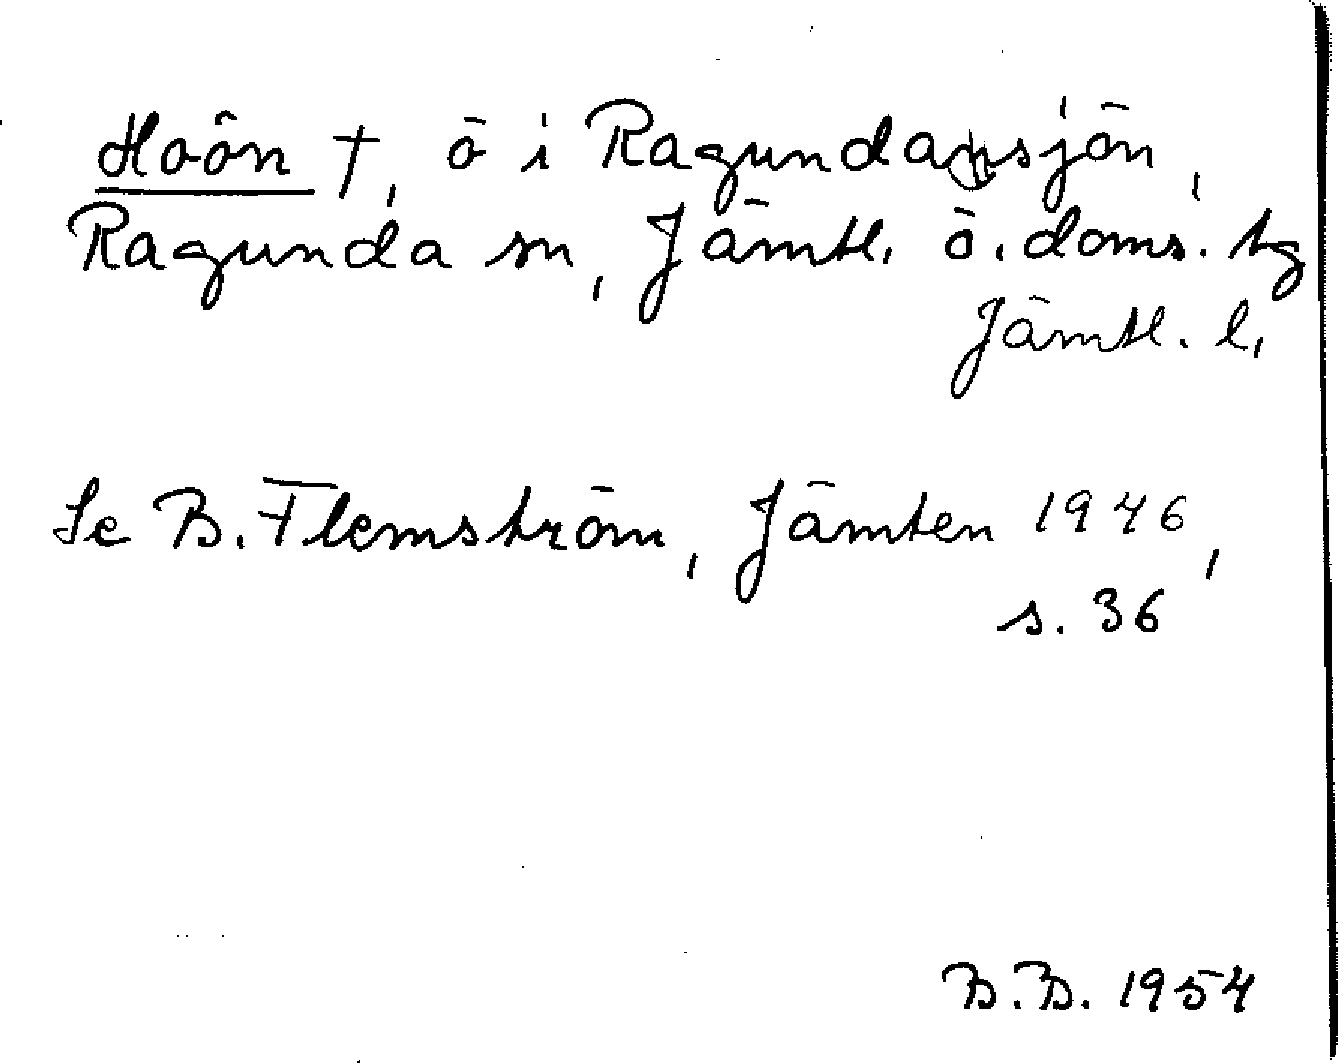 Hoön †, ö i Ragundasjön,
Ragunda sn, Jämtl. ö. doms. tg
Jämtl. l.
Se B. Flemström, Jämten 1946,
s. 36
B.B. 1954